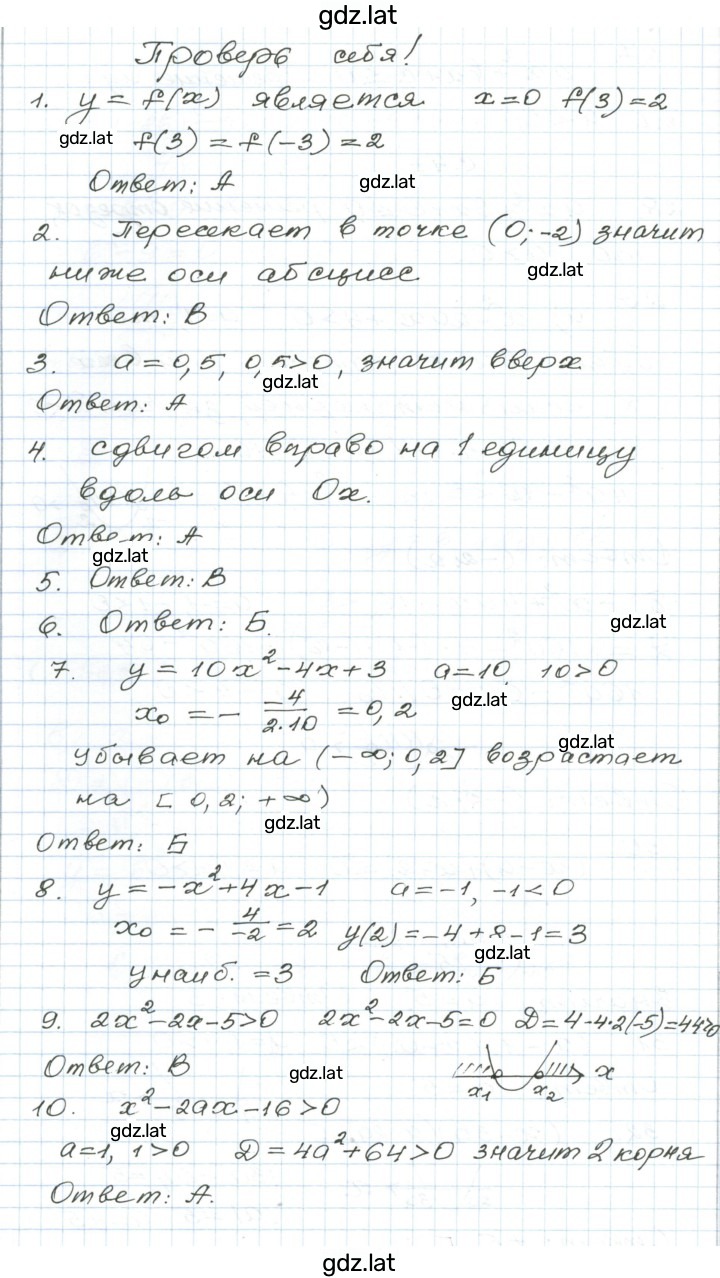 gdz.lat
Проверь себя!
1. y = f(x) является x=0 f(3)=2
gdz.lat f(3) = f(-3) = 2
Ответ: А gdz.lat
2. Пересекает в точке (0;-2) значит
ниже оси абсцисс gdz.lat
Ответ: В
3. a = 0,5, 0,5>0, значит вверх
gdz.lat
Ответ: А
4. сдвигом вправо на 1 единицу
вдоль оси Ох.
Ответ: А
gdz.lat
5. Ответ: В
6. Ответ: Б. gdz.lat
7. y = 10x²-4x+3 a=10, 10>0
x₀ = - -4/2·10 = 0,2 gdz.lat
gdz.lat
убывает на (-∞; 0,2] возрастает
на [0,2; +∞)
gdz.lat
Ответ: Б
8. y = -x²+4x-1 a=-1, -1<0
x₀ = - 4/-2 = 2 y(2)=-4+8-1=3
gdz.lat
y наиб. =3 Ответ: Б
9. 2x²-2x-5>0 2x²-2x-5=0 D=4-4·2(-5)=44>0
Ответ: В gdz.lat x₁ x₂ x
10. x²-2ax-16>0
gdz.lat
a=1, 1>0 D=4a²+64>0 значит 2 корня
Ответ: А.
gdz.lat